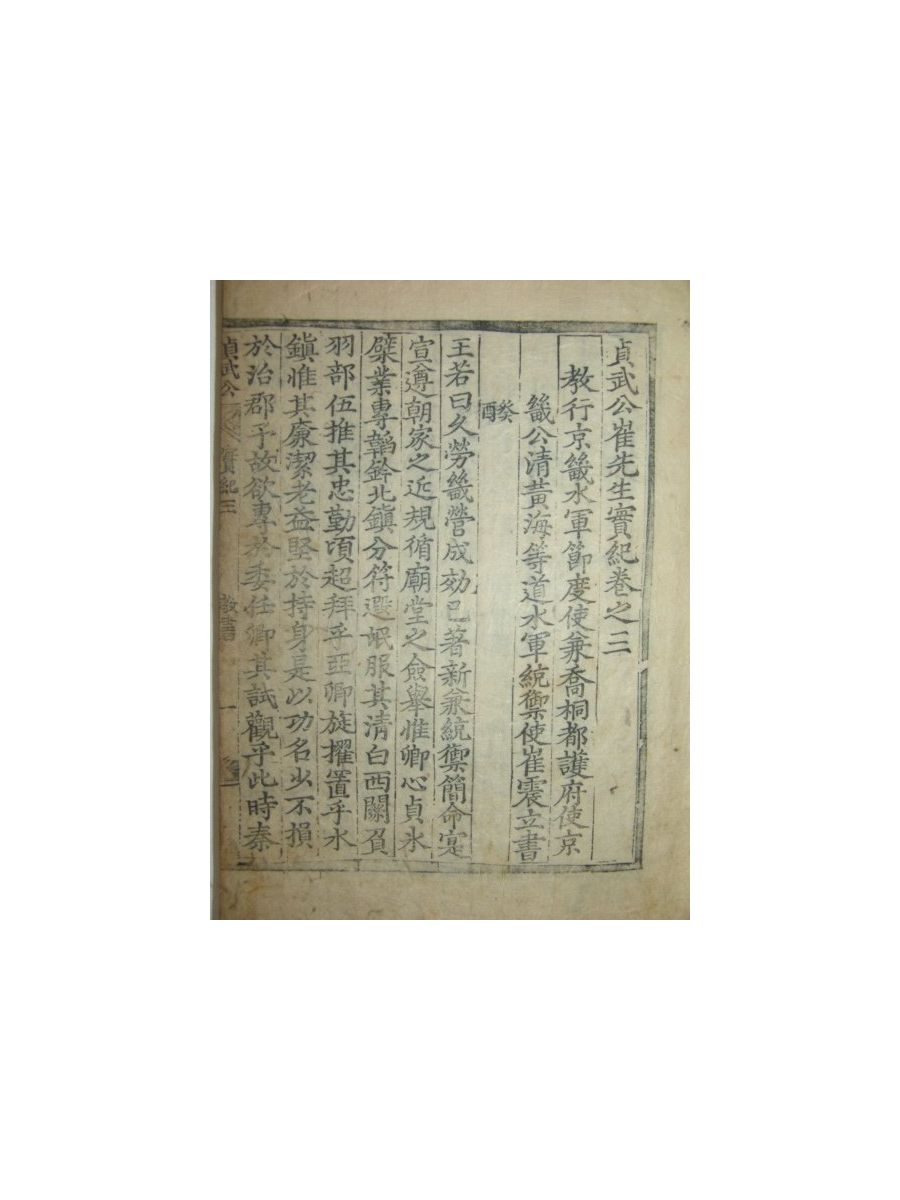 貞武公崔先生實紀卷之三
教行京畿水軍節度使兼喬桐都護府使京
畿公清黃海等道水軍統禦使崔震立書
癸酉
王若曰久勞畿營成効已著新兼統禦簡命寔
宣遵朝家之近規循廟堂之僉舉惟卿心貞氷
檗業專韜鈐北鎭分符遐氓服其清白西關負
羽部伍推其忠勤頃超拜乎亞卿旋擢置乎水
鎭惟其廉潔老益堅於持身是以功名少不損
於治郡予故欲專於委任卿其試觀乎此時奏
貞武公 實紀三 教書 一